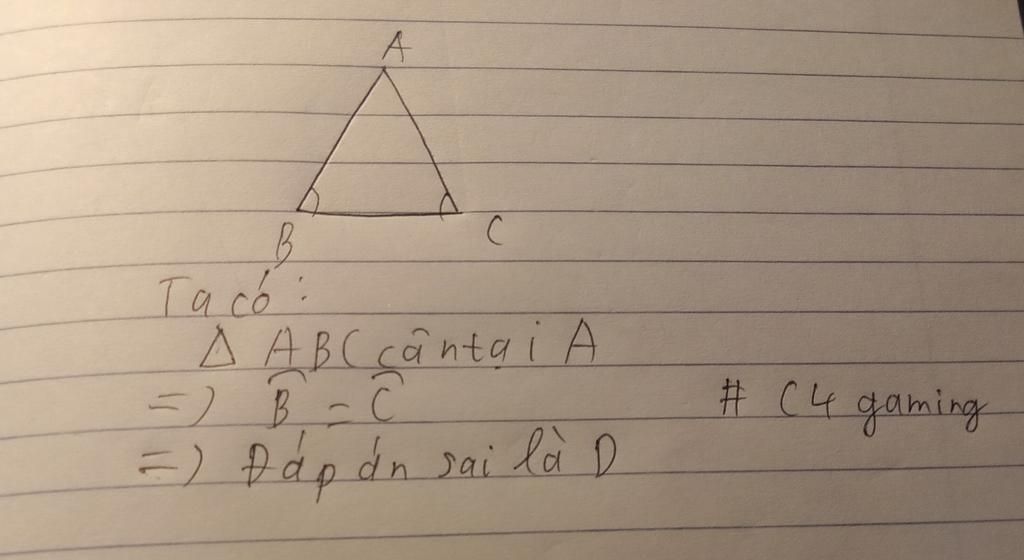 A
B
C
Ta có:
Δ ABC cân tại A
=) B̂ = Ĉ
# C4 gaming
=) Đáp án sai là D